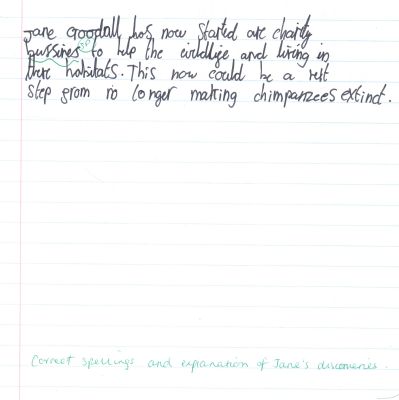 Jane Goodall has now started are charity
bussines to help the wildlige and living in
there habitats. This now could be a
step grom no longer making chimpanzees extinct.
Correct spellings and explanation of Jane's discoveries.